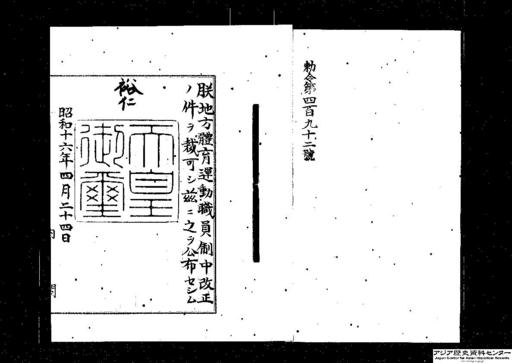 勅令第四百九十二號
朕地方體育運動職員制中改正
ノ件ヲ裁可シ茲ニ之ヲ公布セシム
裕仁
天皇御璽
昭和十六年四月二十四日
内閣
アジア歴史資料センター
Japan Center for Asian Historical Records